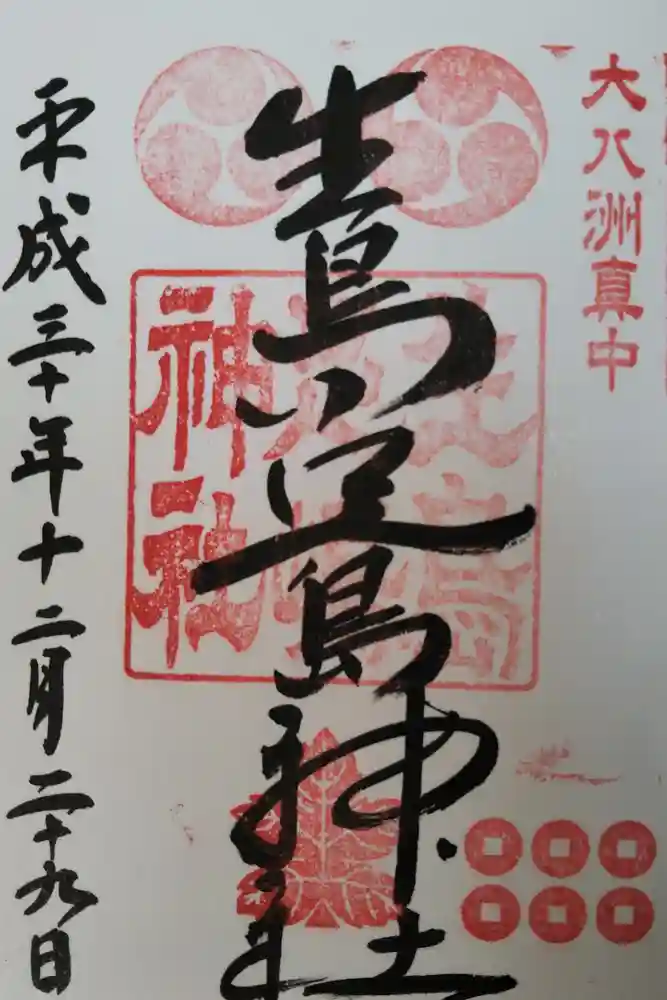 大八洲真中
生島足島神社
生島足島神社
平成三十年十二月二十九日